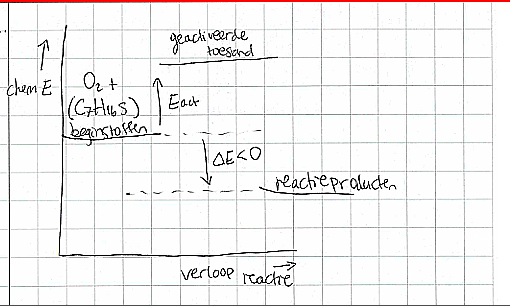 geactiveerde
toesand
chem E
O₂ +
(C₇H₁₆S)
beginstoffen
Eact
ΔE<0
reactieproducten
verloop reactie